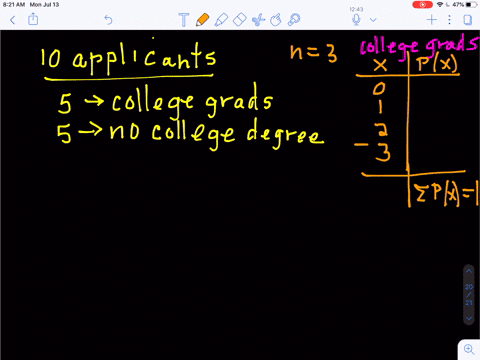 8:21 AM Mon Jul 13
47%
12:43
10 applicants
5 → college grads
5 → no college degree
n = 3
college grads
x P(x)
0
1
2
- 3
Σ P(x) = 1
20
/
21